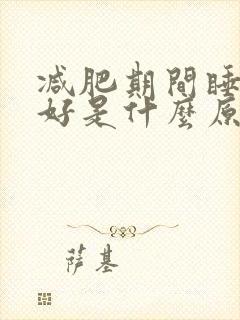 减肥期間睡
好是什麼原
萨基